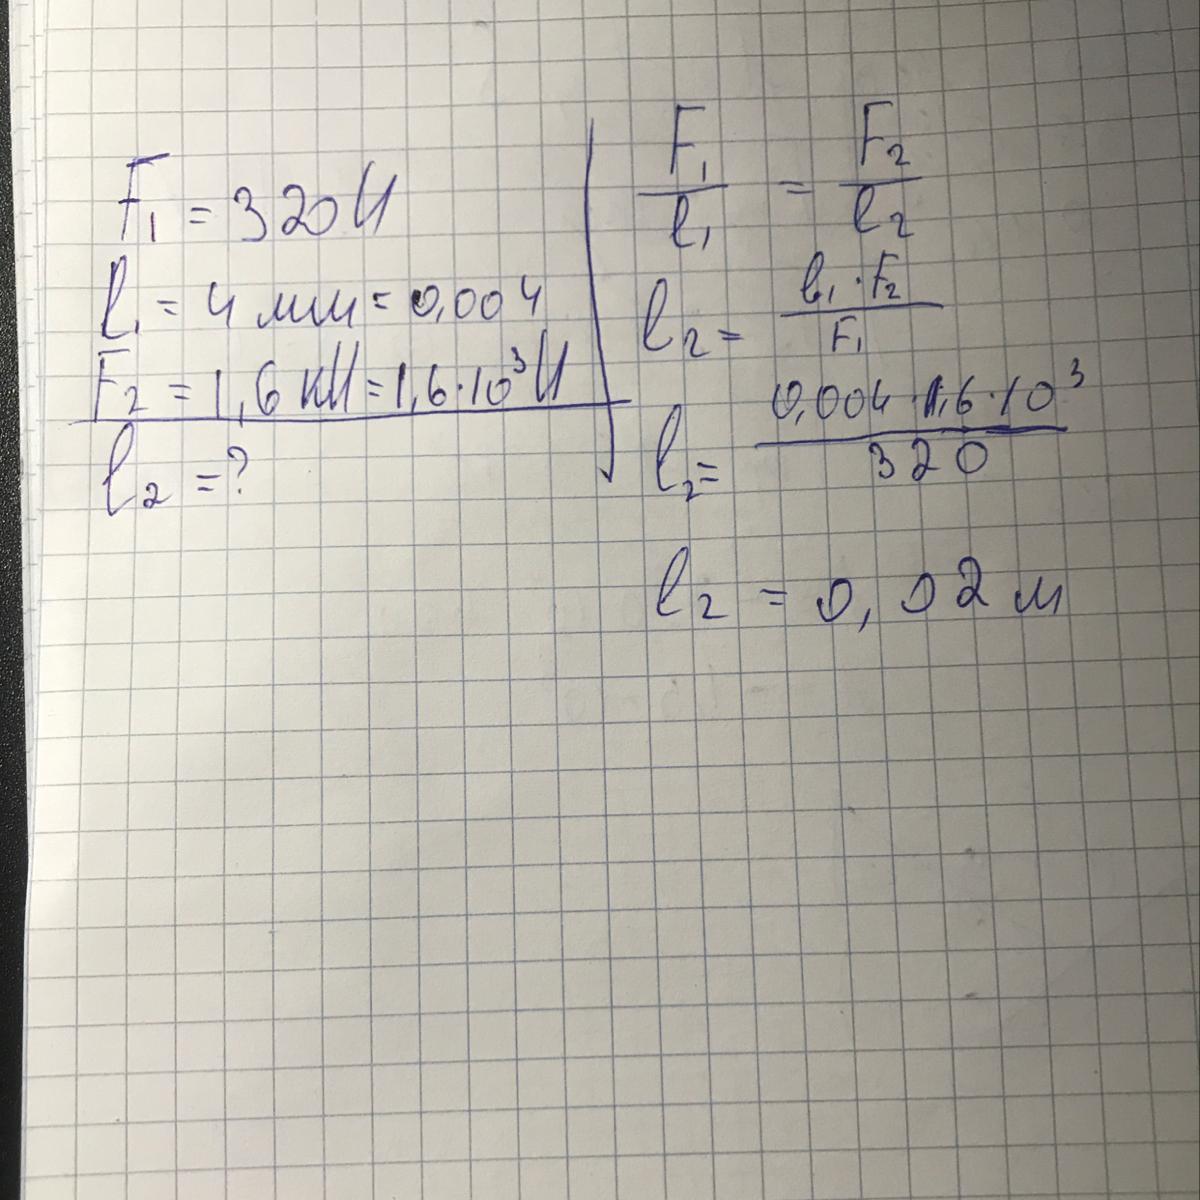 F₁ = 320 Н
l₁ = 4 мм = 0,004
F₂ = 1,6 кН = 1,6·10³ Н
l₂ = ?
F₁/l₁ = F₂/l₂
l₂ = l₁·F₂/F₁
l₂ = 0,004·1,6·10³/320
l₂ = 0,02 м